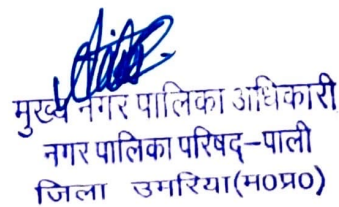 मुख्य नगर पालिका अधिकारी
नगर पालिका परिषद्-पाली
जिला उमरिया(म0प्र0)